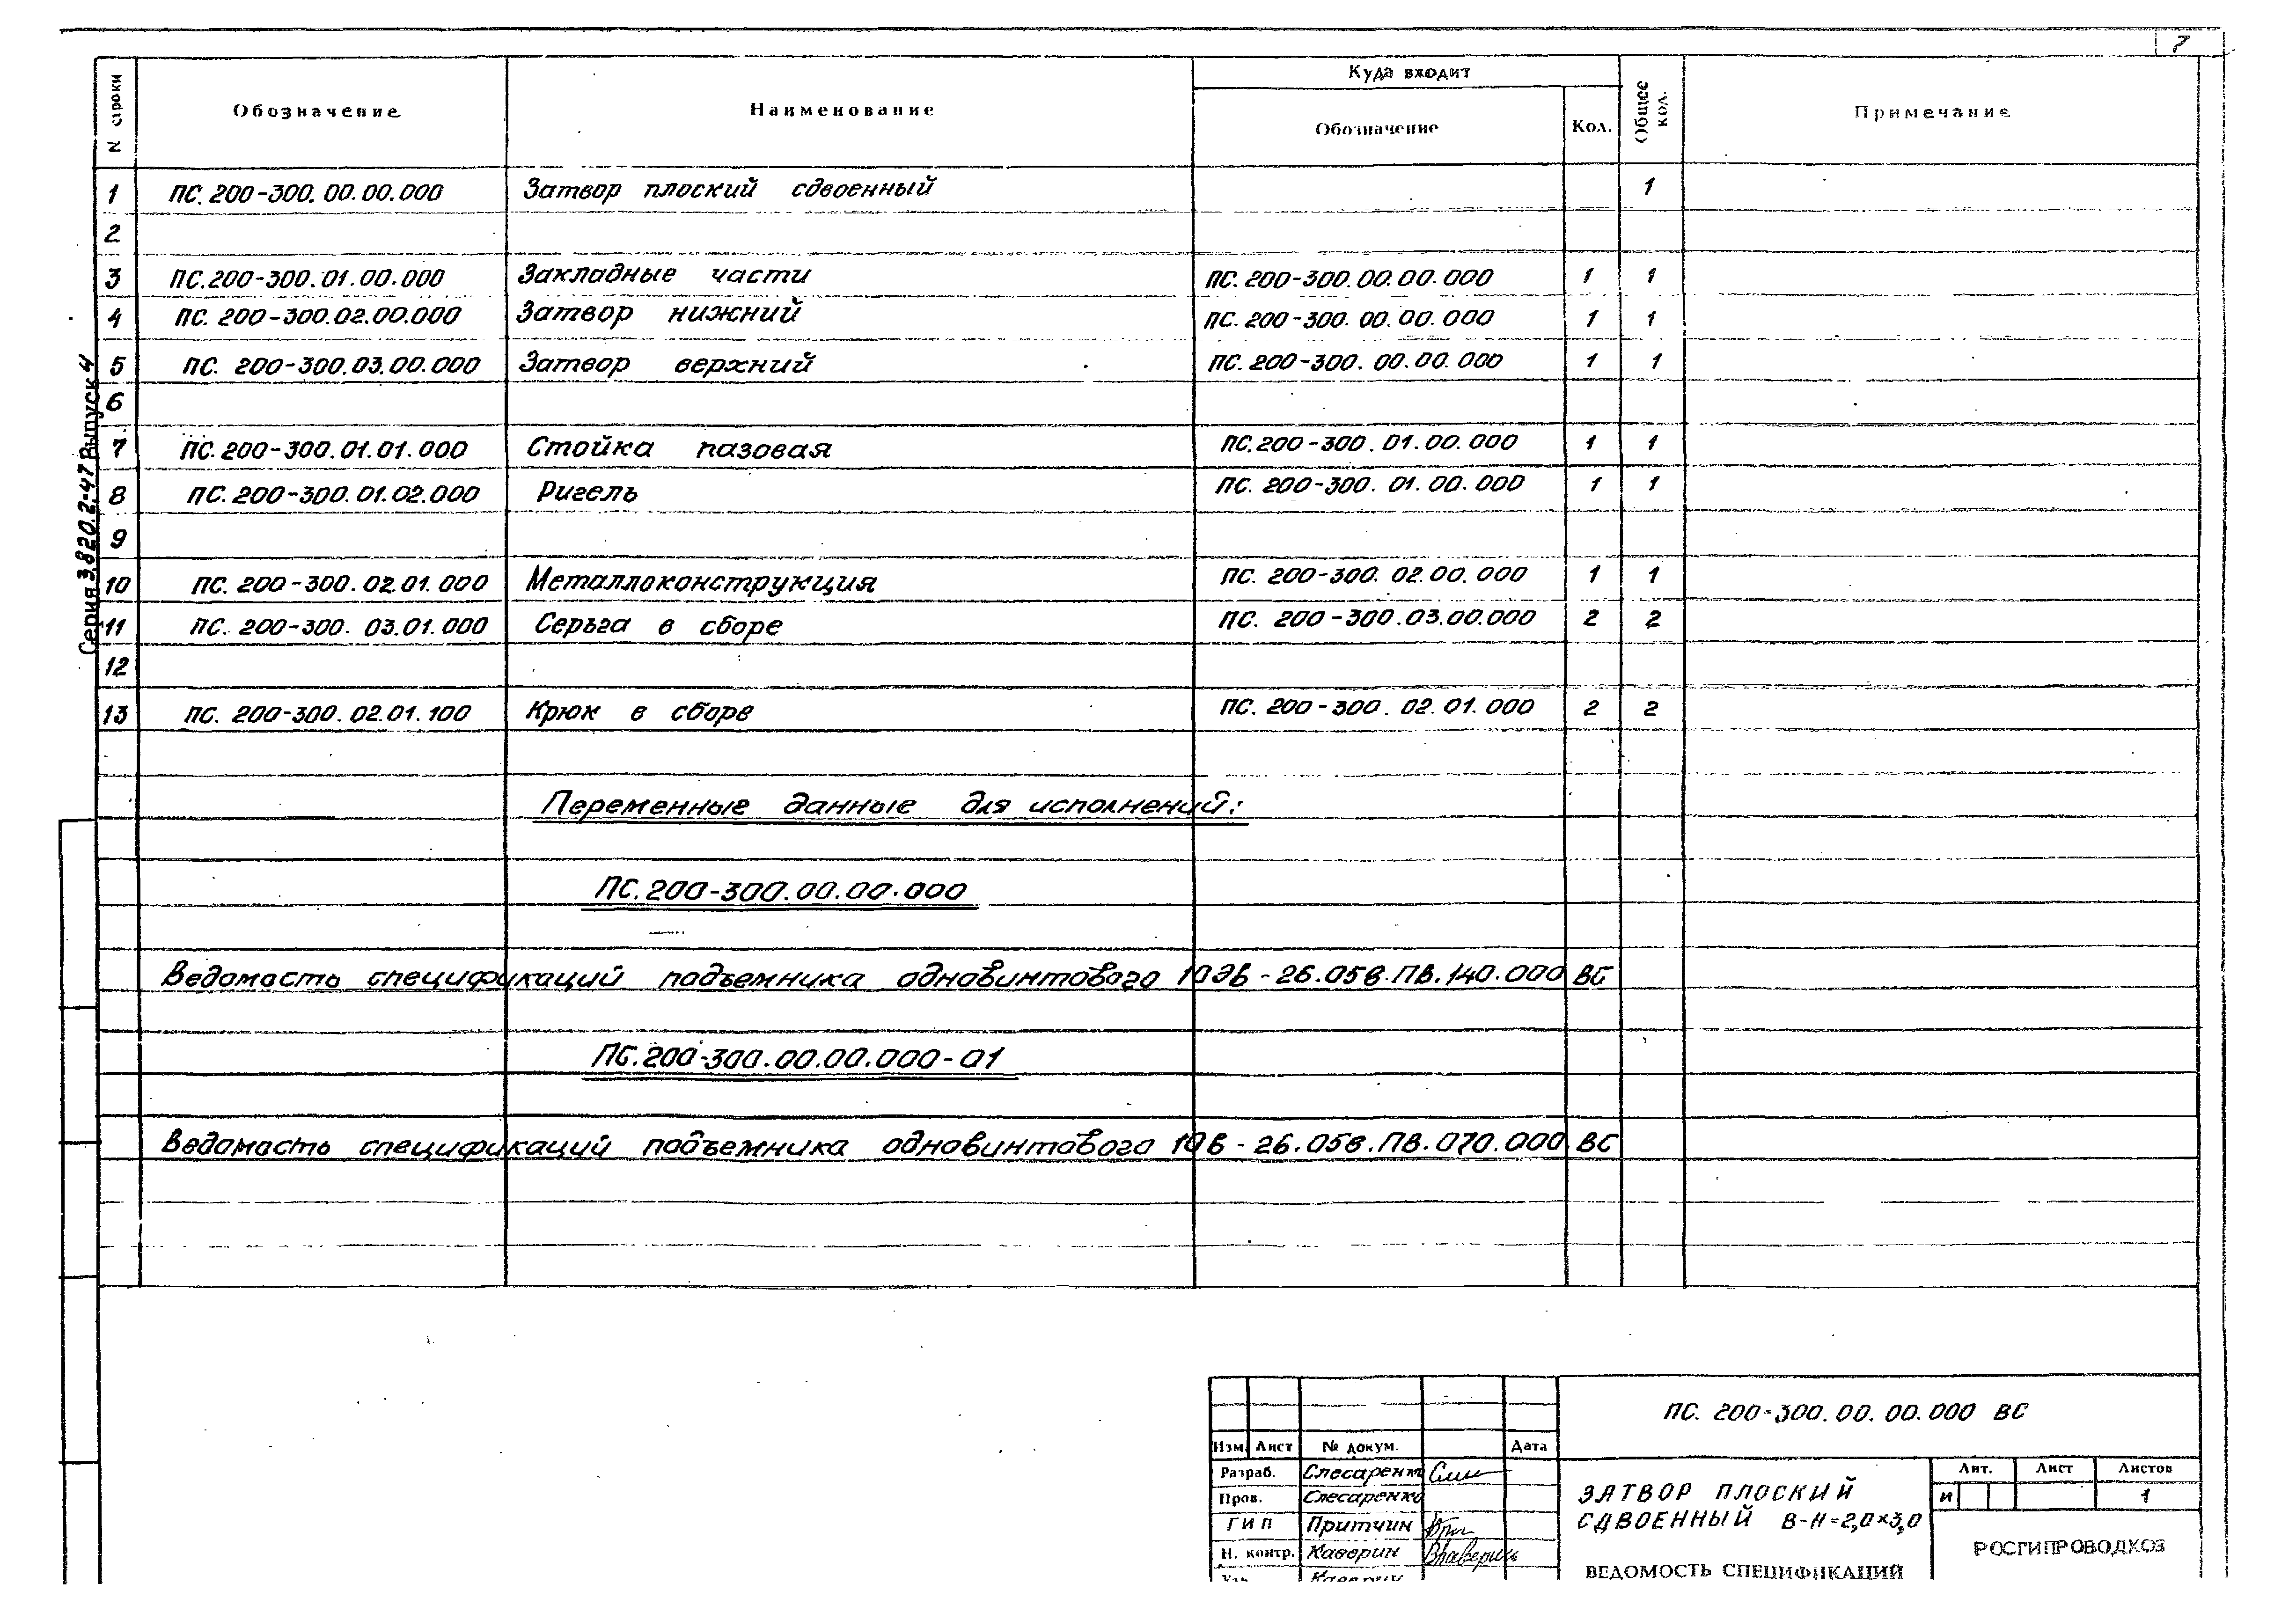 7
N строки Обозначение Наименование Куда входит Обозначение Кол. Общее кол. Примечание
1 ПС. 200-300. 00. 00. 000 Затвор плоский сдвоенный 1
2
3 ПС. 200-300. 01. 00. 000 Закладные части ПС. 200-300. 00. 00. 000 1 1
4 ПС. 200-300. 02. 00. 000 Затвор нижний ПС. 200-300. 00. 00. 000 1 1
5 ПС. 200-300. 03. 00. 000 Затвор верхний ПС. 200-300. 00. 00. 000 1 1
6
7 ПС. 200-300. 01. 01. 000 Стойка пазовая ПС. 200-300. 01. 00. 000 1 1
8 ПС. 200-300. 01. 02. 000 Ригель ПС. 200-300. 01. 00. 000 1 1
9
10 ПС. 200-300. 02. 01. 000 Металлоконструкция ПС. 200-300. 02. 00. 000 1 1
11 ПС. 200-300. 03. 01. 000 Серьга в сборе ПС. 200-300. 03. 00. 000 2 2
12
13 ПС. 200-300. 02. 01. 100 Крюк в сборе ПС. 200-300. 02. 01. 000 2 2
Переменные данные для исполнений:
ПС. 200-300. 00. 00. 000
Ведомость спецификаций подъемника одновинтового 10ЭВ-26.05в.ПВ.140.000 ВС
ПС. 200-300. 00. 00. 000-01
Ведомость спецификаций подъемника одновинтового 10В-26.05в.ПВ.070.000 ВС
Серия 3.820.2-47 Выпуск 4
ПС. 200-300. 00. 00. 000 ВС
Изм. Лист № докум. Дата
Разраб. Слесаренко
Пров. Слесаренко
ГИП Притчин
Н. контр. Каверин
Каверин
ЗАТВОР ПЛОСКИЙ
СДВОЕННЫЙ В-Н=2,0×3,0
ВЕДОМОСТЬ СПЕЦИФИКАЦИЙ
Лит. Лист Листов
И 1
РОСГИПРОВОДХОЗ